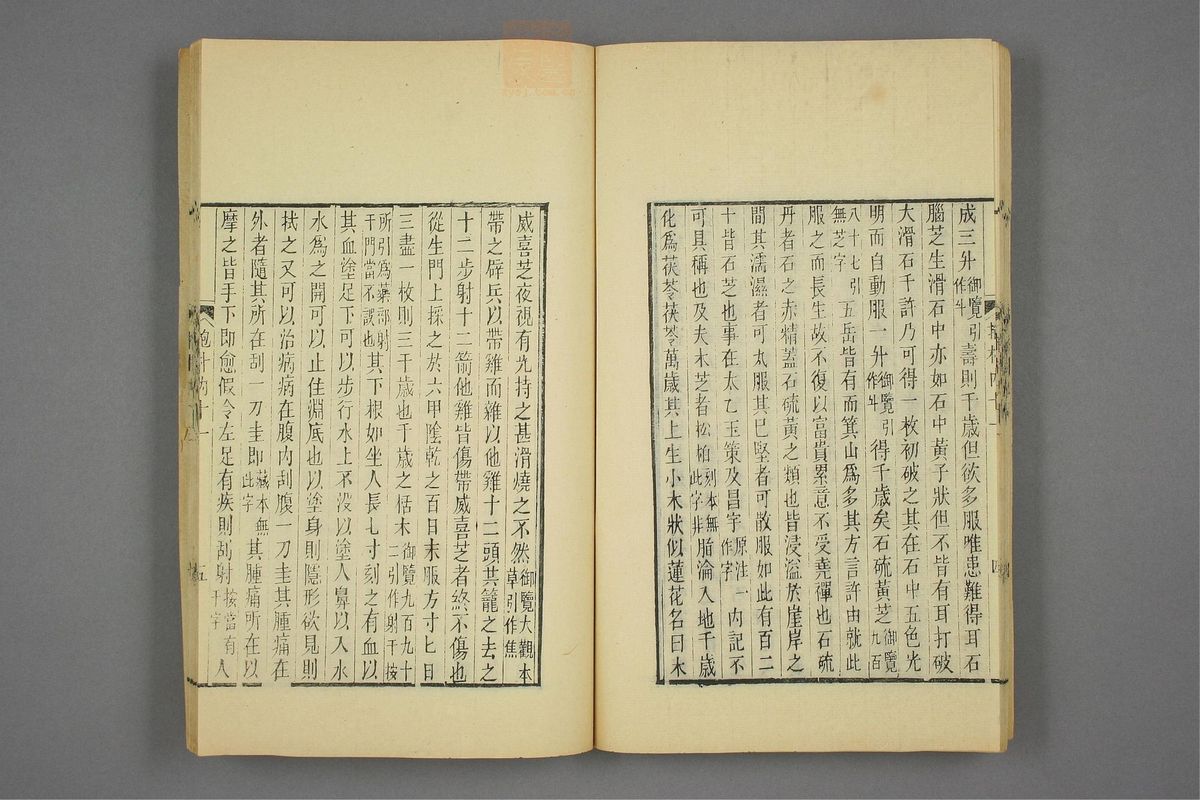 成三升御覽引作斗壽則千歲但欲多服唯患難得耳石
腦芝生滑石中亦如石中黃子狀但不皆有耳打破
大滑石千許乃可得一枚初破之其在石中五色光
明而自動服一升御覽引作斗得千歲矣石硫黃芝御覽九百
八十七引無芝字五岳皆有而箕山為多其方言許由就此
服之而長生故不復以富貴累意不受堯禪也石硫
丹者石之赤精蓋石硫黃之類也皆浸溢於崖岸之
間其濡濕者可丸服其已堅者可散服如此有百二
十皆石芝也事在太乙玉策及昌宇原注一作字內記不
可具稱也及夫木芝者松柏刻本無此字非脂淪入地千歲
化為茯苓茯苓萬歲其上生小木狀似蓮花名曰木
威喜芝夜視有光持之甚滑燒之不然御覽大觀本草引作焦
帶之辟兵以帶雞而雜以他雞十二頭其籠之去之
十二步射十二箭他雞皆傷帶威喜芝者終不傷也
從生門上採之於六甲陰乾之百日末服方寸匕日
三盡一枚則三千歲也千歲之栝木御覽九百九十二引作射干按
所引為藥部射干門當不誤也其下根如坐人長七寸刻之有血以
其血塗足下可以步行水上不沒以塗人鼻以入水
水為之開可以止住淵底也以塗身則隱形欲見則
拭之又可以治病病在腹內刮腹一刀圭其腫痛在
外者隨其所在刮一刀圭即藏本無此字其腫痛所在以
摩之皆手下即愈假令左足有疾則刮射按當有人干字
抱朴內十一
五
四